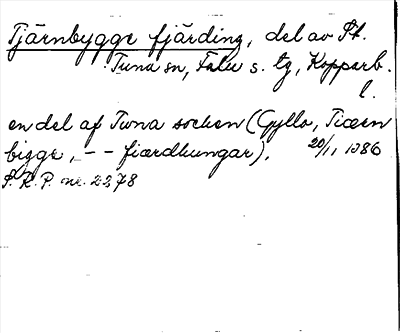 Tjärnbygge fjärding, del av St.
Tuna sn, Falu s. tg, Kopparb.
l.
en del af Tuna socken (Gylla, Tiærn
bigge, - - fiærdhungar). 20/11 1386
S. R. P. nr. 2278